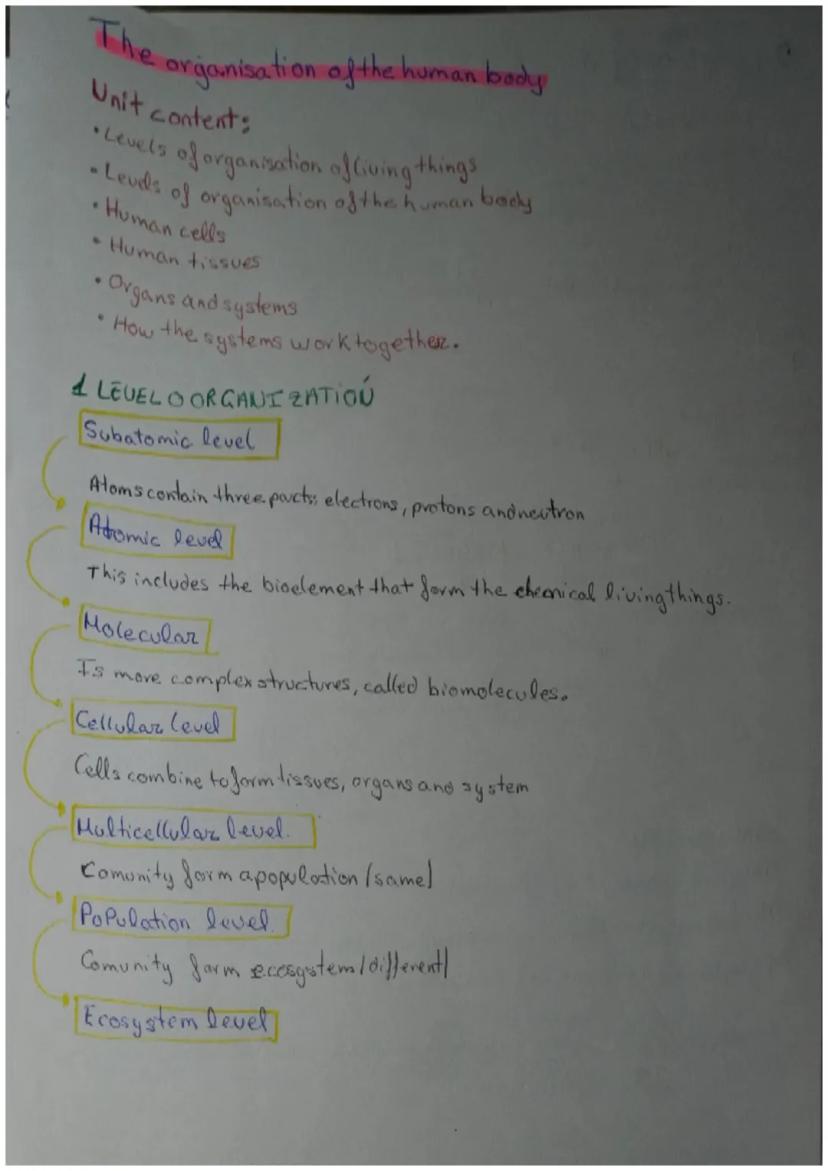 The organisation of the human body
Unit content:
• Levels of organisation of living things
• Levels of organisation of the human body
• Human cells
• Human tissues
• Organs and systems
• How the systems work together.
1 LEVEL O ORGANIZATIÓN
Subatomic level
Atoms contain three parts: electrons, protons and neutron
Atomic level
This includes the bioelement that form the chemical living things.
Molecular
Is more complex structures, called biomolecules.
Cellular level
Cells combine to form tissues, organs and system
Multicellular level.
Comunity form a population (same)
Population level.
Comunity form ecosystem (different)
Ecosystem level